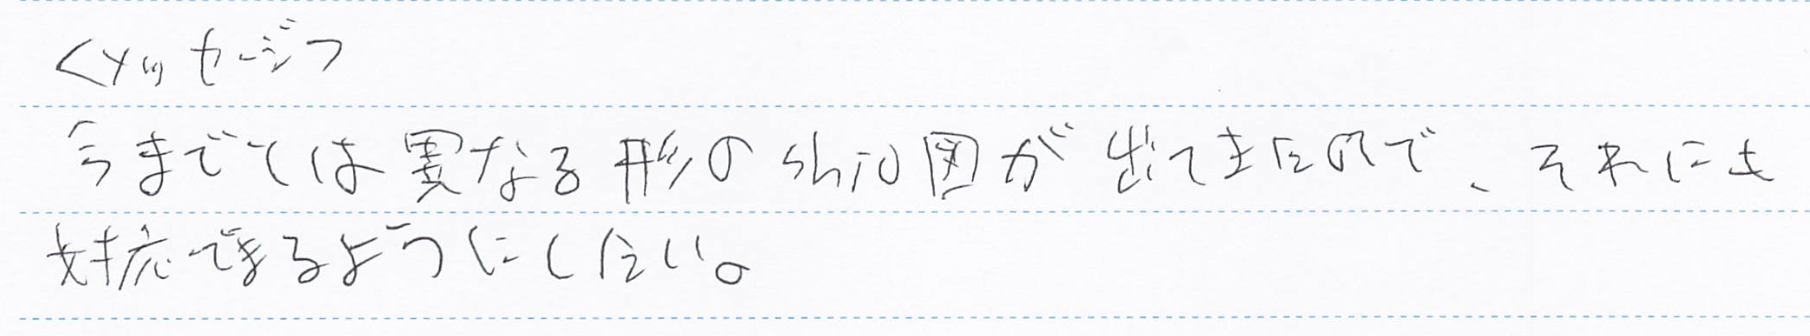 <メッセージ>
今までとは異なる形のshio図が出てきたので、それにも
対応できるようにしたい。